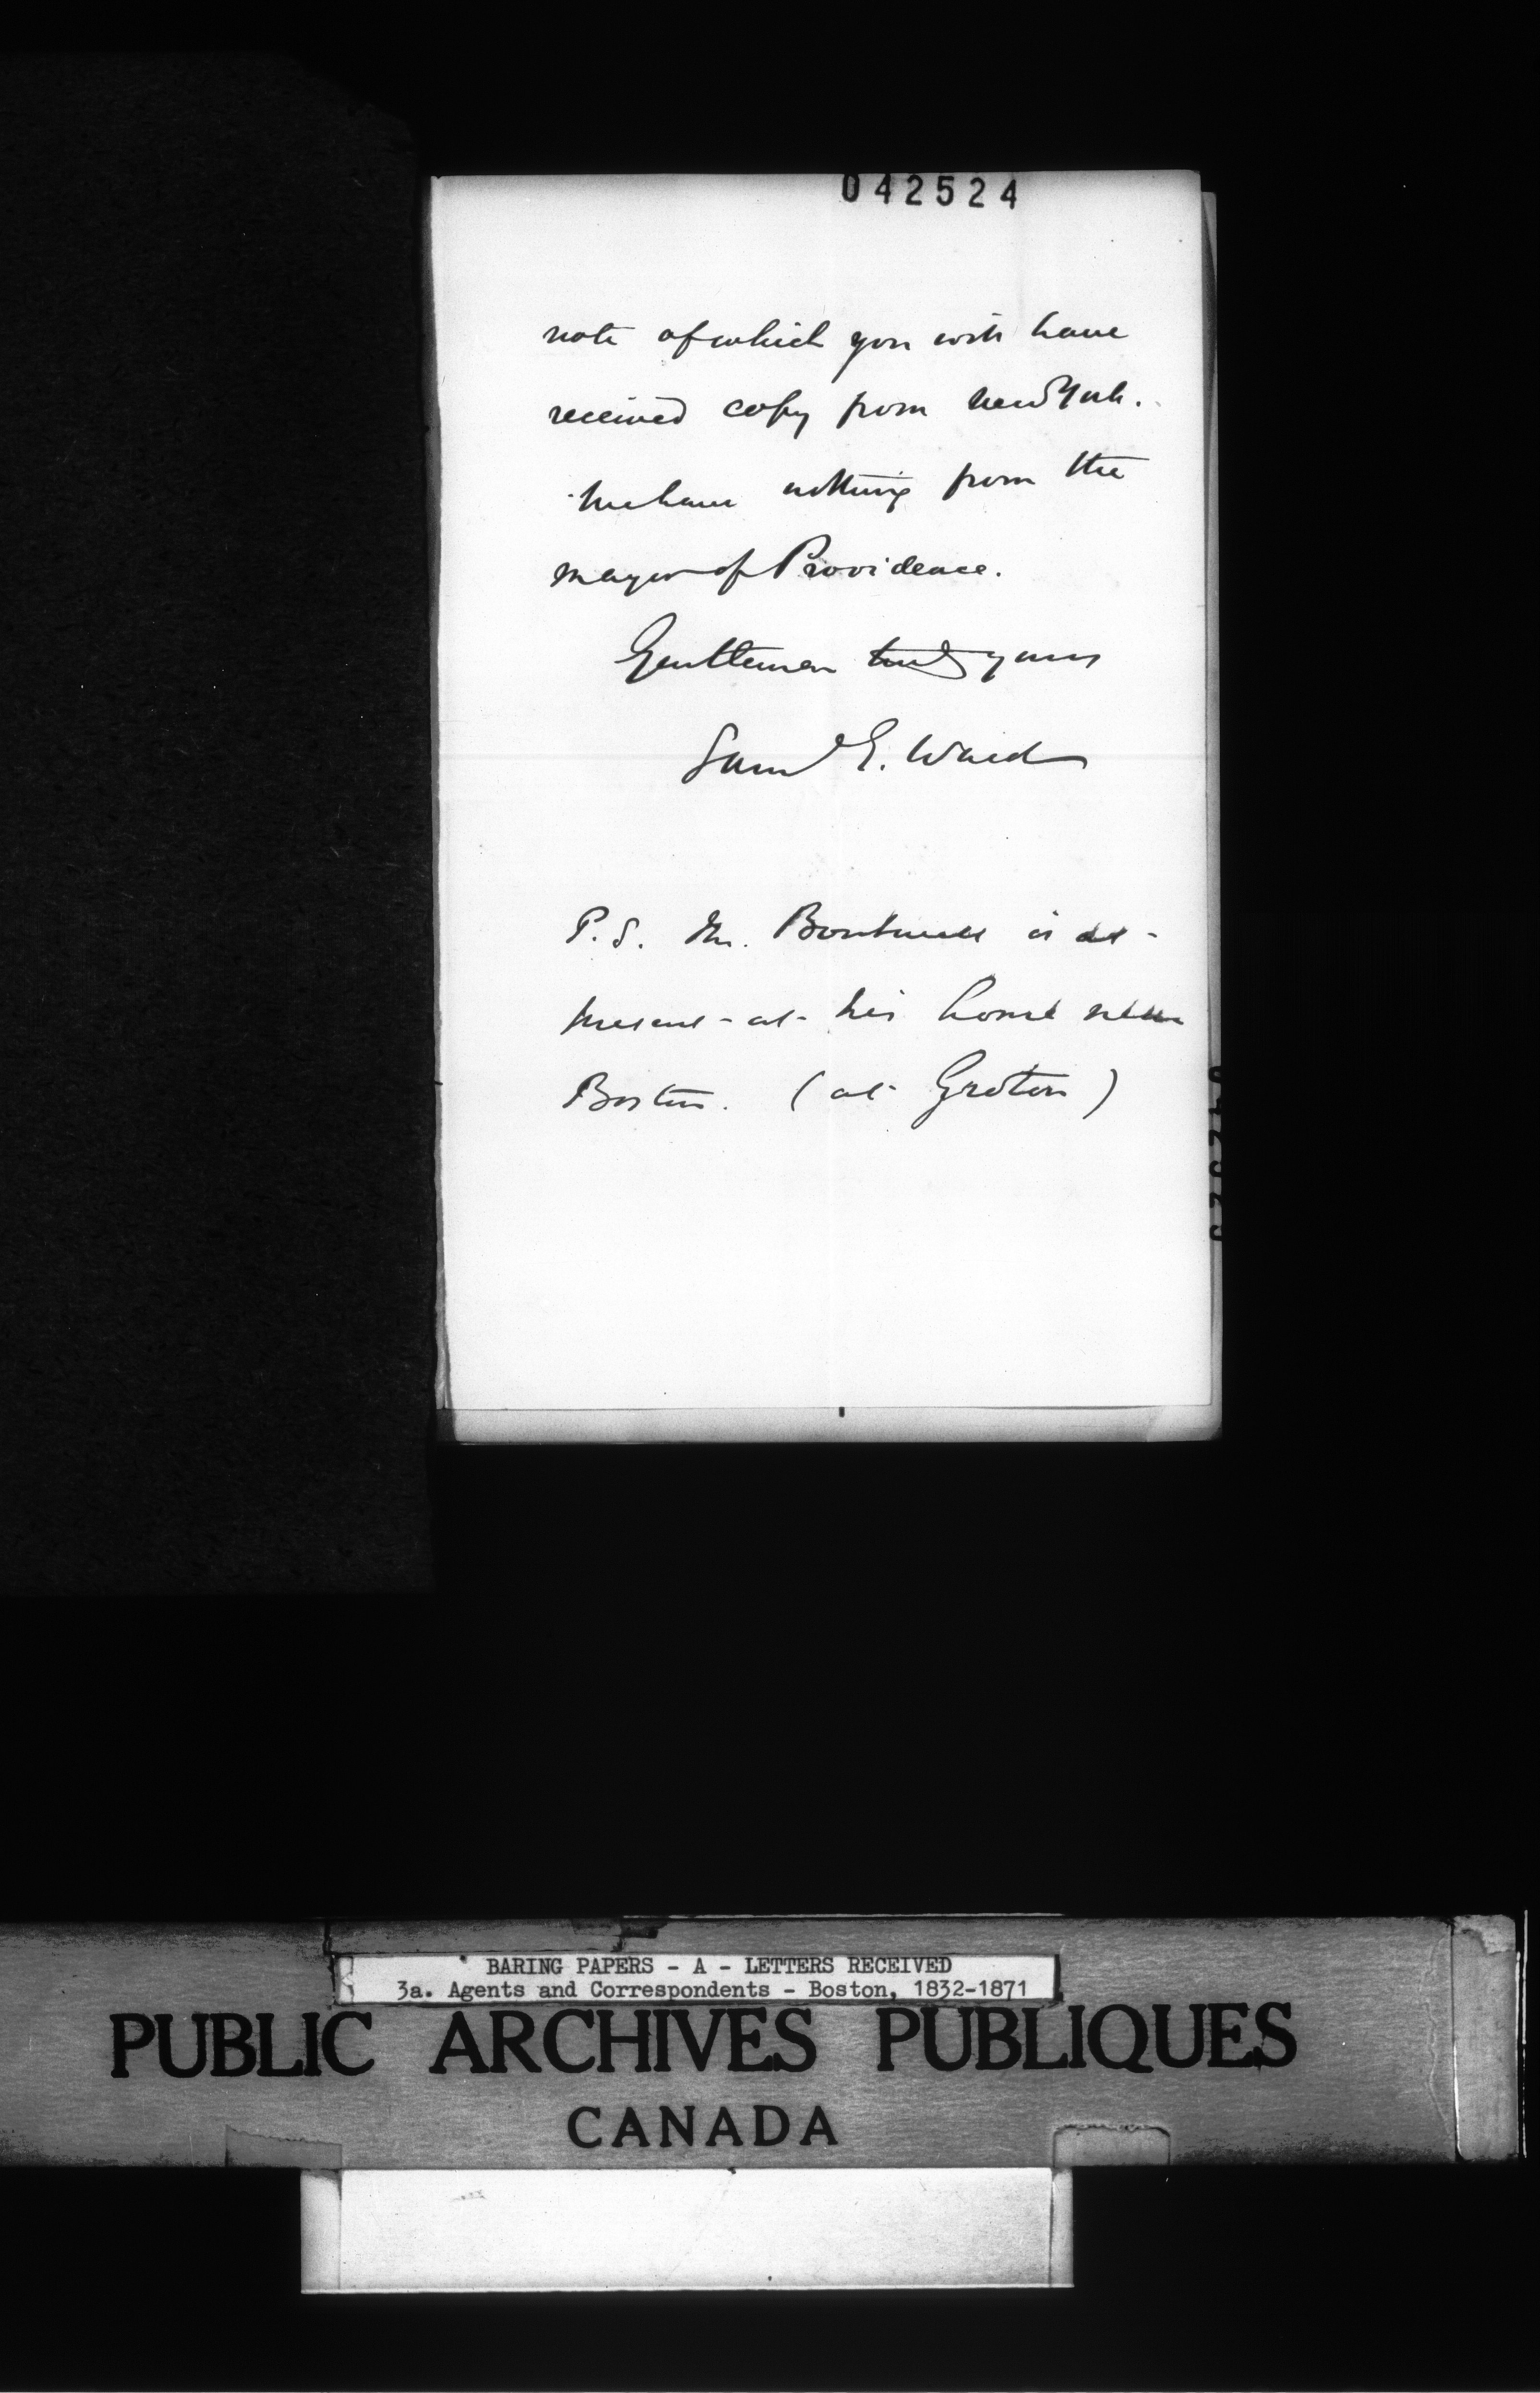 042524
note of which you will have
received copy from New York.
We have nothing from the
mayor of Providence.
Gentlemen truly yours
Saml G. Ward
P.S. Mr. Boutwell is at
present at his home near
Boston. (at Groton)
BARING PAPERS - A - LETTERS RECEIVED
3a. Agents and Correspondents - Boston, 1832-1871
PUBLIC ARCHIVES PUBLIQUES
CANADA